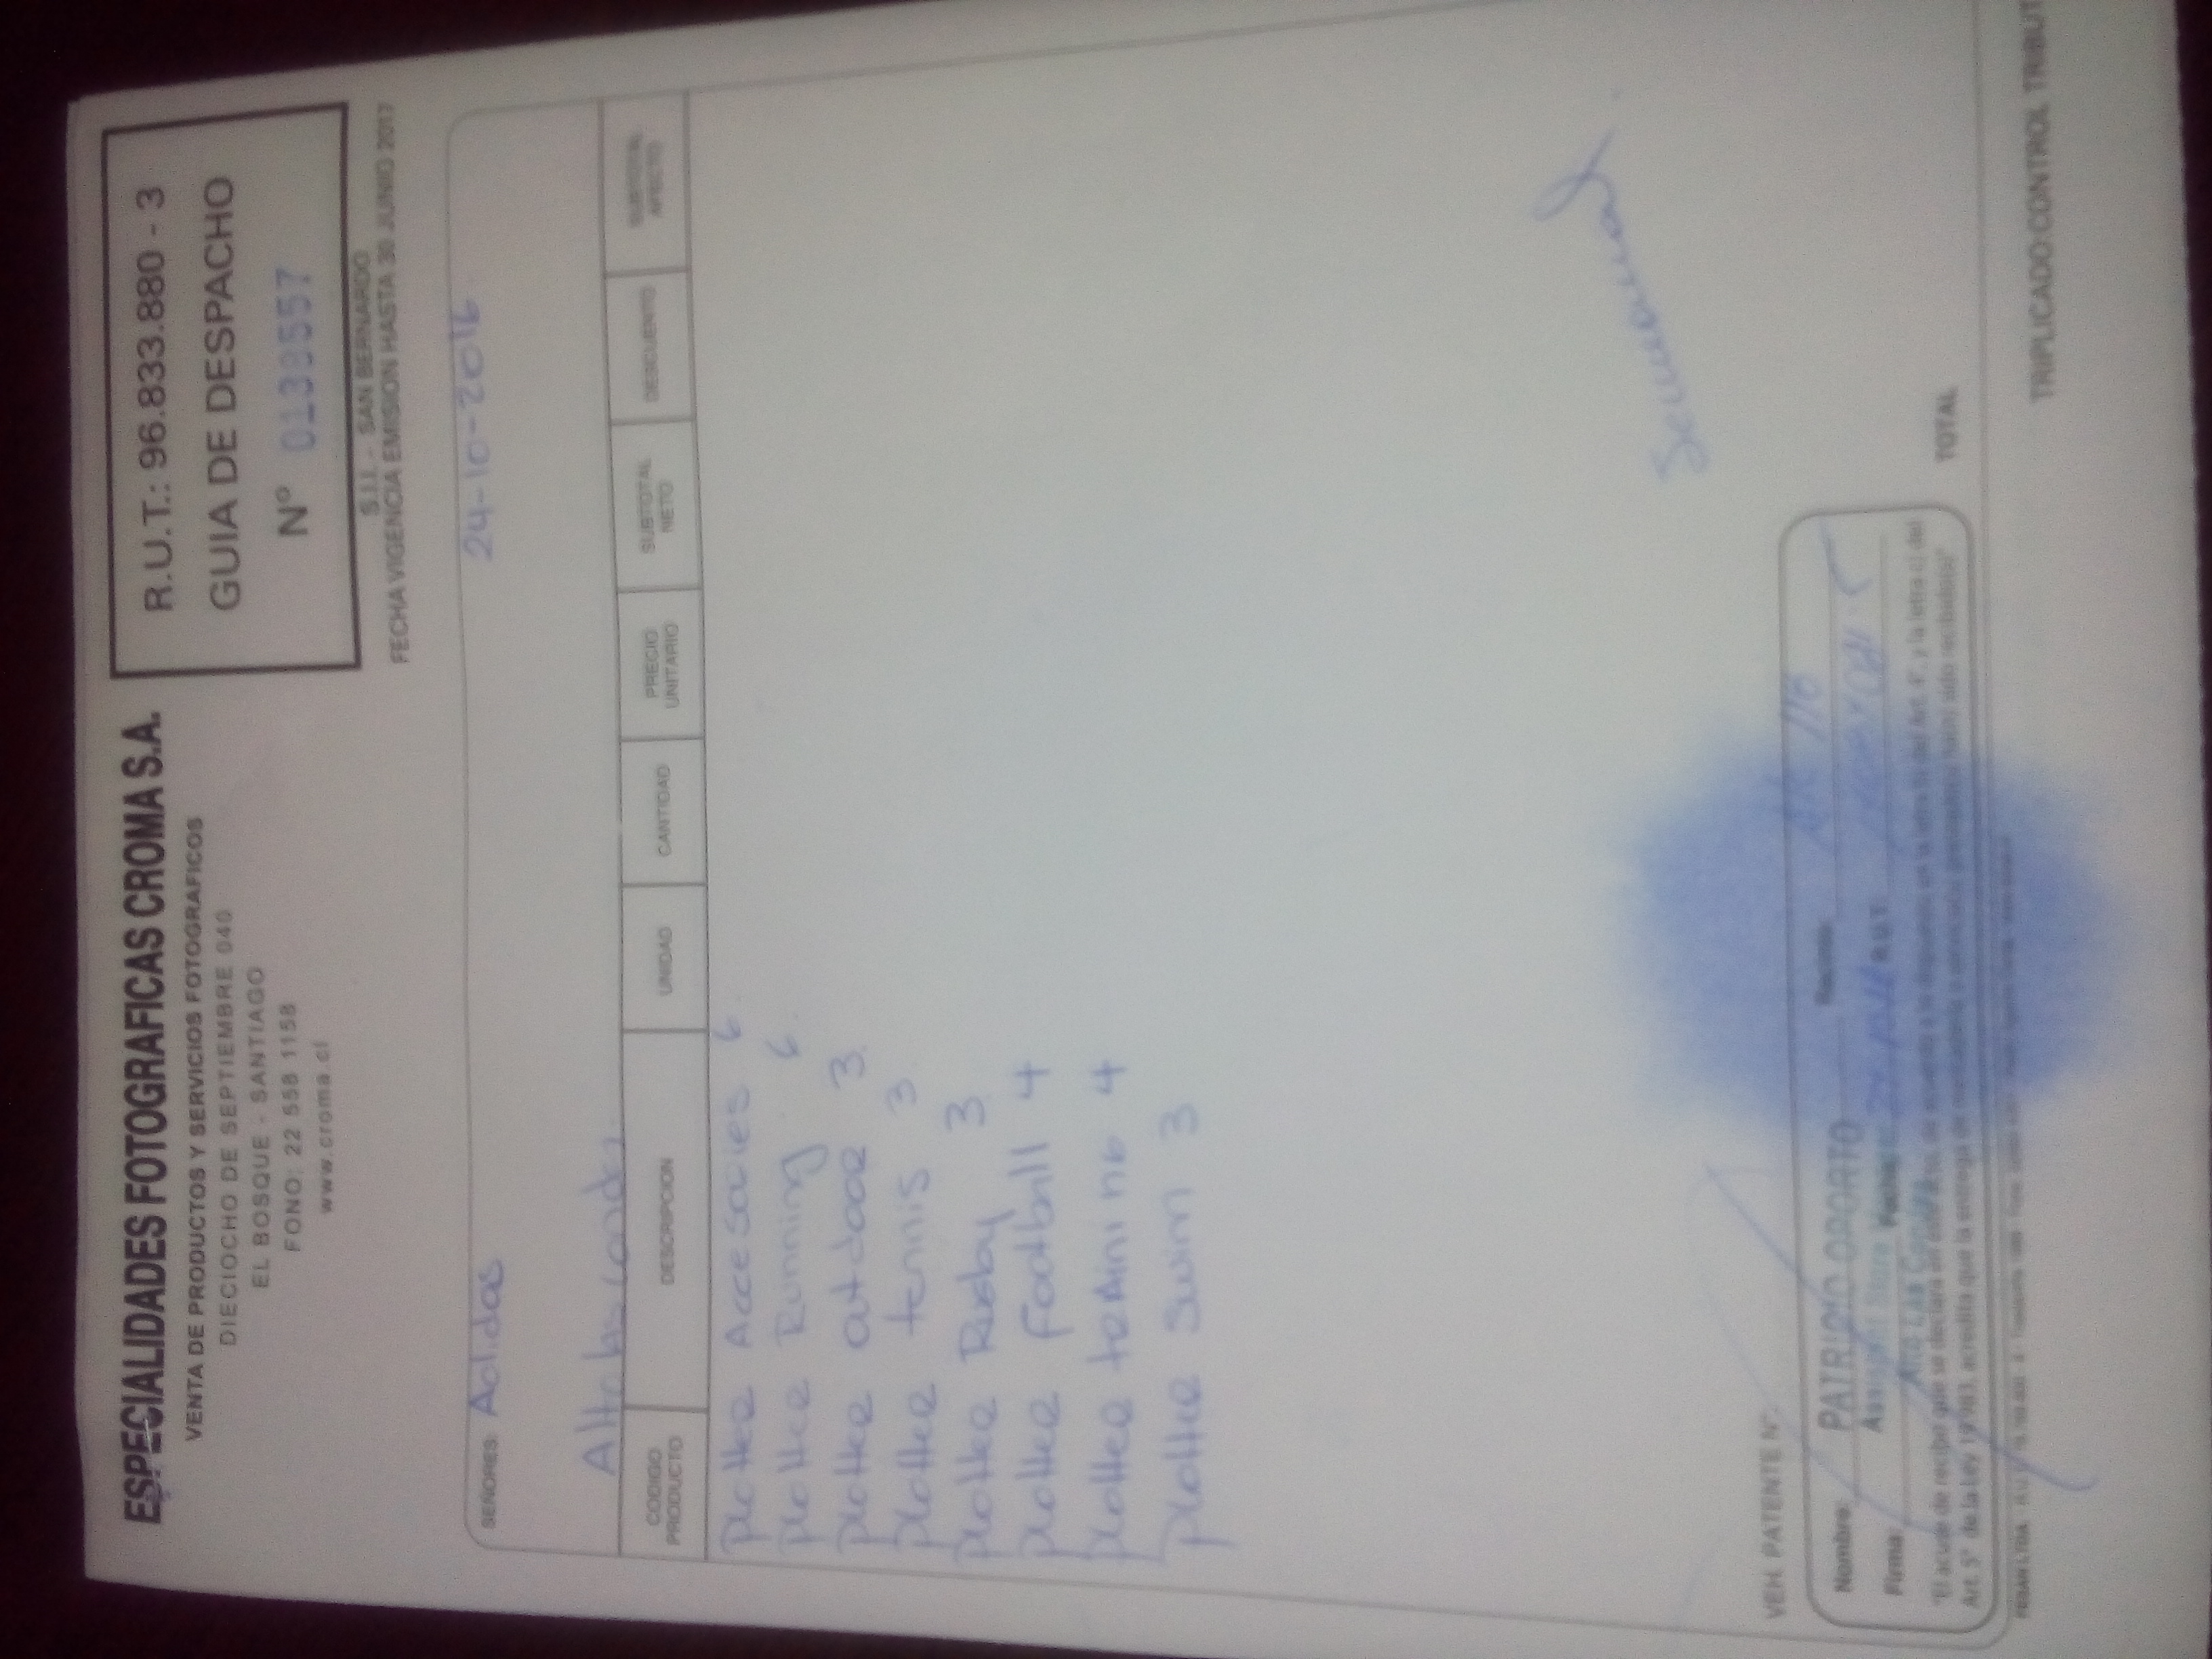 ESPECIALIDADES FOTOGRAFICAS CROMA S.A.
VENTA DE PRODUCTOS Y SERVICIOS FOTOGRAFICOS
DIECIOCHO DE SEPTIEMBRE 040
EL BOSQUE - SANTIAGO
FONO: 22 558 1158
www.croma.cl
R.U.T.: 96.833.880 - 3
GUIA DE DESPACHO
Nº 0138557
S.I.I. - SAN BERNARDO
FECHA VIGENCIA EMISION HASTA 30 JUNIO 2017
SEÑORES: Adidas 24-10-2016
Alto las condes
CODIGO PRODUCTO DESCRIPCION UNIDAD CANTIDAD PRECIO UNITARIO SUBTOTAL NETO DESCUENTO SUBTOTAL AFECTO
plotter Accesories 6
plotter Running 6
plotter outdoor 3
plotter tennis 3
plotter Rugby 3
plotter Football 4
plotter training 4
plotter swim 3
Semanal
VEH. PATENTE Nº:
Nombre: PATRICIO OPORTO Recinto:
Assistant Store Manager
Firma: Fecha: R.U.T.:
Alto Las Condes
"El acuse de recibo que se declara en este acto, de acuerdo a lo dispuesto en la letra b) del Art. 4º, y la letra c) del
Art. 5º de la Ley 19.983, acredita que la entrega de mercaderías o servicio(s) prestado(s) ha(n) sido recibido(s)"
TOTAL
TRIPLICADO:CONTROL TRIBUT